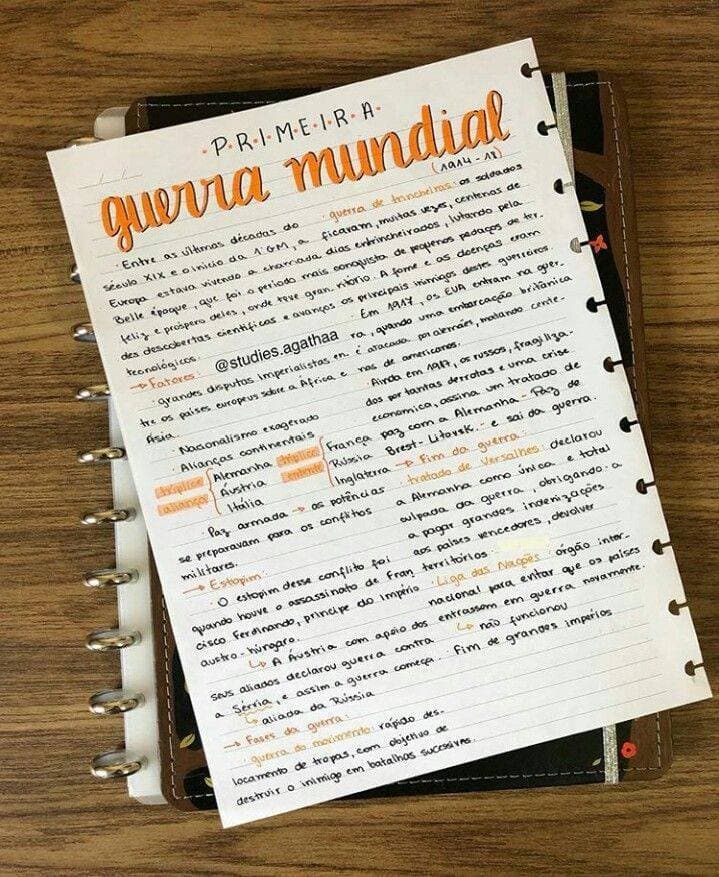 ·P·R·I·M·E·I·R·A·
guerra mundial
(1914-18)
· Entre as últimas décadas do
século XIX e o início da 1ª GM, a
Europa estava vivendo a chamada
Belle époque, que foi o período mais
feliz e próspero deles, onde teve gran
des descobertas científicas e avanços
tecnológicos.
@studies.agathaa
→ Fatores:
· grandes disputas imperialistas en
tre os países europeus sobre a África e
Ásia.
· Nacionalismo exagerado
· Alianças continentais
tríplice aliança { Alemanha Áustria Itália
tríplice entente { França Rússia Inglaterra
· Paz armada → as potências
se preparavam para os conflitos
militares.
→ Estopim:
· O estopim desse conflito foi
quando houve o assassinato de Fran
cisco Ferdinando, príncipe do Império
austro-húngaro.
↳ A Áustria com apoio dos
seus aliados declarou guerra contra
a Sérvia, e assim a guerra começa.
↳ aliada da Rússia
→ Fases da guerra:
· guerra do movimento: rápido des-
locamento de tropas, com objetivo de
destruir o inimigo em batalhas sucessivas.
· guerra de trincheiras: os soldados
ficavam, muitas vezes, centenas de
dias entrincheirados, lutando pela
conquista de pequenos pedaços de ter
ritório. A fome e as doenças eram
os principais inimigos destes guerreiros.
· Em 1917, os EUA entram na guer
ra, quando uma embarcação britânica
é atacada por alemães, matando cente-
nas de americanos.
· Ainda em 1917, os russos, fragiliza-
dos por tantas derrotas e uma crise
economica, assina um tratado de
paz com a Alemanha - Paz de
Brest-Litovsk.- e sai da guerra.
→ Fim da guerra:
· tratado de Versalhes: declarou
a Alemanha como única e total
culpada da guerra, obrigando-a
a pagar grandes indenizações
aos países vencedores, devolver
territórios.
· Liga das Nações: órgão inter-
nacional para evitar que os países
entrassem em guerra novamente.
↳ não funcionou
· Fim de grandes impérios